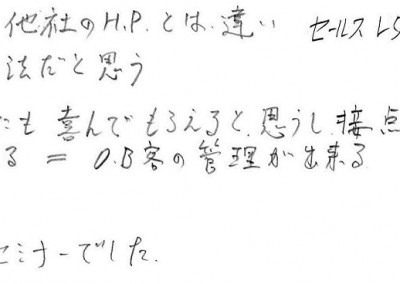 他社のH.P.とは違い セールスレS
法だと思う
にも喜んでもらえると思うし、接点
る = O.B客の管理が出来る
セミナーでした.